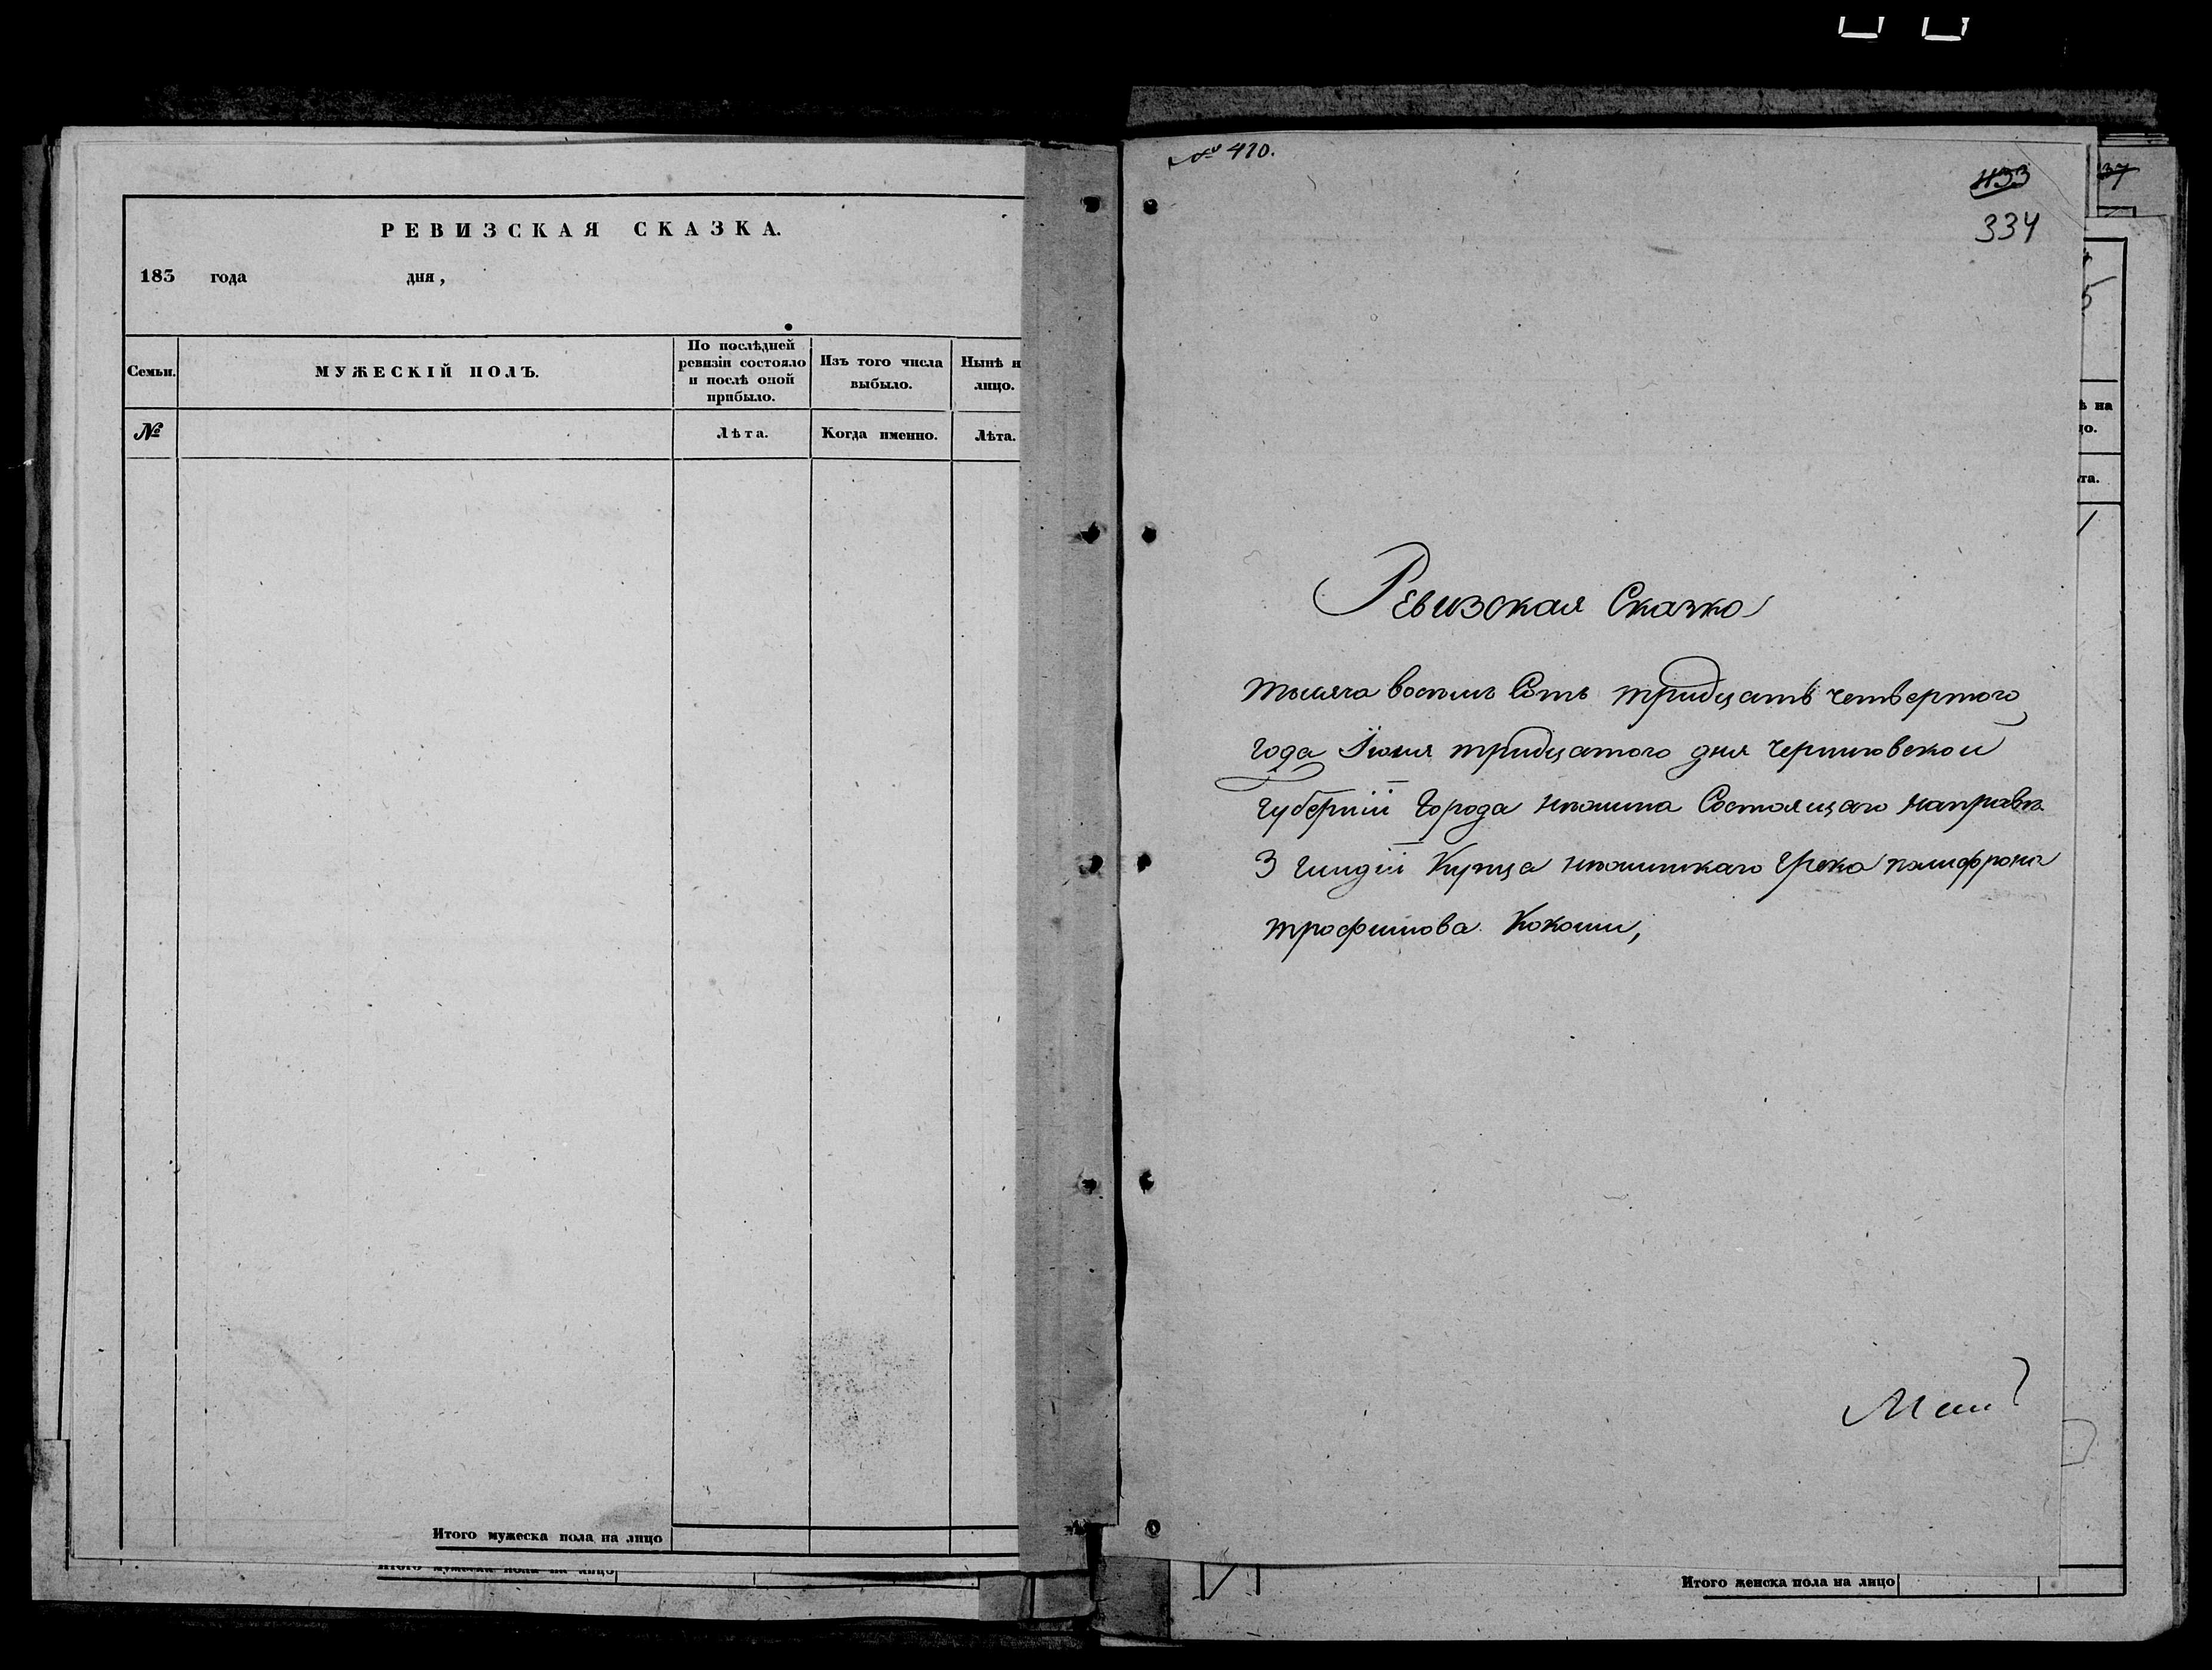 РЕВИЗСКАЯ СКАЗКА.
183 года дня,
Семьи.
МУЖЕСКІЙ ПОЛЪ.
По послѣдней
ревизіи состояло
и послѣ оной
прибыло.
Изъ того числа
выбыло.
Нынѣ н
лицо.
№
Лѣта.
Когда именно.
Лѣта.
Итого мужеска пола на лицо
Итого мужеска пола на лицо
№ 410.
433
334
Ревизская Сказка
тысяча восемь Сотъ тридцать четвертого
года Июня тридцатого дня Черниговской
губерніи Города нѣжина Состоящаго направѣ
3 гилдіи Купца нѣжинскаго Грека
трофимова Кокоши,
37
5
ѣ на
цо.
та.
1
Итого женска пола на лицо